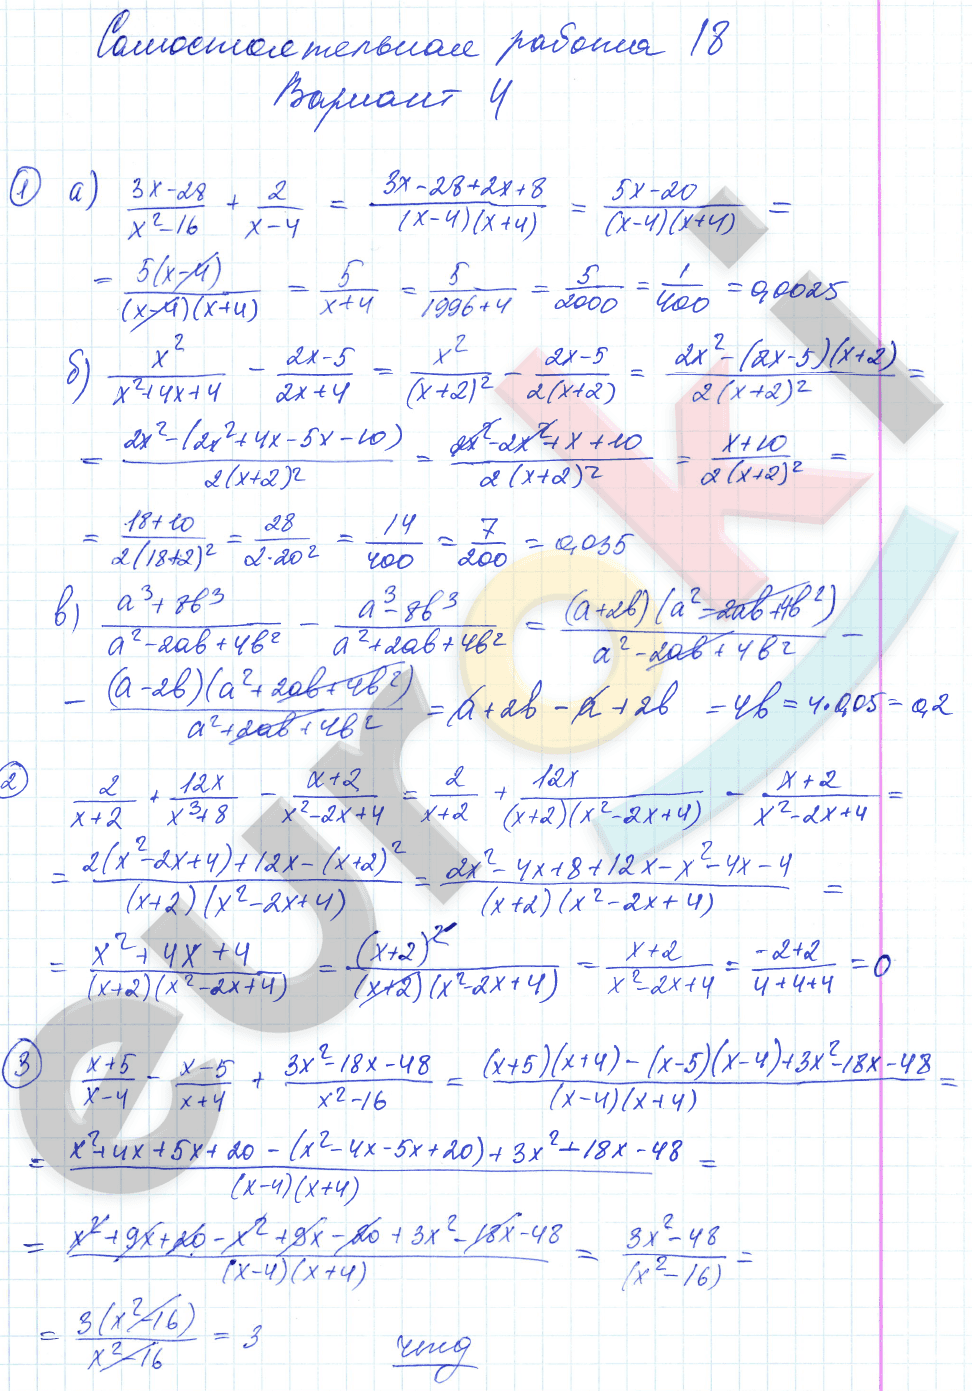 Самостоятельная работа 18
Вариант 4
① а) (3x-28)/(x²-16) + 2/(x-4) = (3x-28+2x+8)/((x-4)(x+4)) = (5x-20)/((x-4)(x+4)) =
= 5(x-4)/((x-4)(x+4)) = 5/(x+4) = 5/(1996+4) = 5/2000 = 1/400 = 0,0025
б) x²/(x²+4x+4) - (2x-5)/(2x+4) = x²/(x+2)² - (2x-5)/(2(x+2)) = (2x²-(2x-5)(x+2))/(2(x+2)²) =
= (2x²-(2x²+4x-5x-10))/(2(x+2)²) = (2x²-2x²+x+10)/(2(x+2)²) = (x+10)/(2(x+2)²) =
= (18+10)/(2(18+2)²) = 28/(2·20²) = 14/400 = 7/200 = 0,035
в) (a³+8b³)/(a²-2ab+4b²) - (a³-8b³)/(a²+2ab+4b²) = (a+2b)(a²-2ab+4b²)/(a²-2ab+4b²) -
- (a-2b)(a²+2ab+4b²)/(a²+2ab+4b²) = a+2b-a+2b = 4b = 4·0,05 = 0,2
② 2/(x+2) + 12x/(x³+8) - (x+2)/(x²-2x+4) = 2/(x+2) + 12x/((x+2)(x²-2x+4)) - (x+2)/(x²-2x+4) =
= (2(x²-2x+4)+12x-(x+2)²)/((x+2)(x²-2x+4)) = (2x²-4x+8+12x-x²-4x-4)/((x+2)(x²-2x+4)) =
= (x²+4x+4)/((x+2)(x²-2x+4)) = (x+2)²/((x+2)(x²-2x+4)) = (x+2)/(x²-2x+4) = (-2+2)/(4+4+4) = 0
③ (x+5)/(x-4) - (x-5)/(x+4) + (3x²-18x-48)/(x²-16) = ((x+5)(x+4)-(x-5)(x-4)+3x²-18x-48)/((x-4)(x+4)) =
= (x²+4x+5x+20-(x²-4x-5x+20)+3x²-18x-48)/((x-4)(x+4)) =
= (x²+9x+20-x²+9x-20+3x²-18x-48)/((x-4)(x+4)) = (3x²-48)/(x²-16) =
= 3(x²-16)/(x²-16) = 3 чтд
euroki